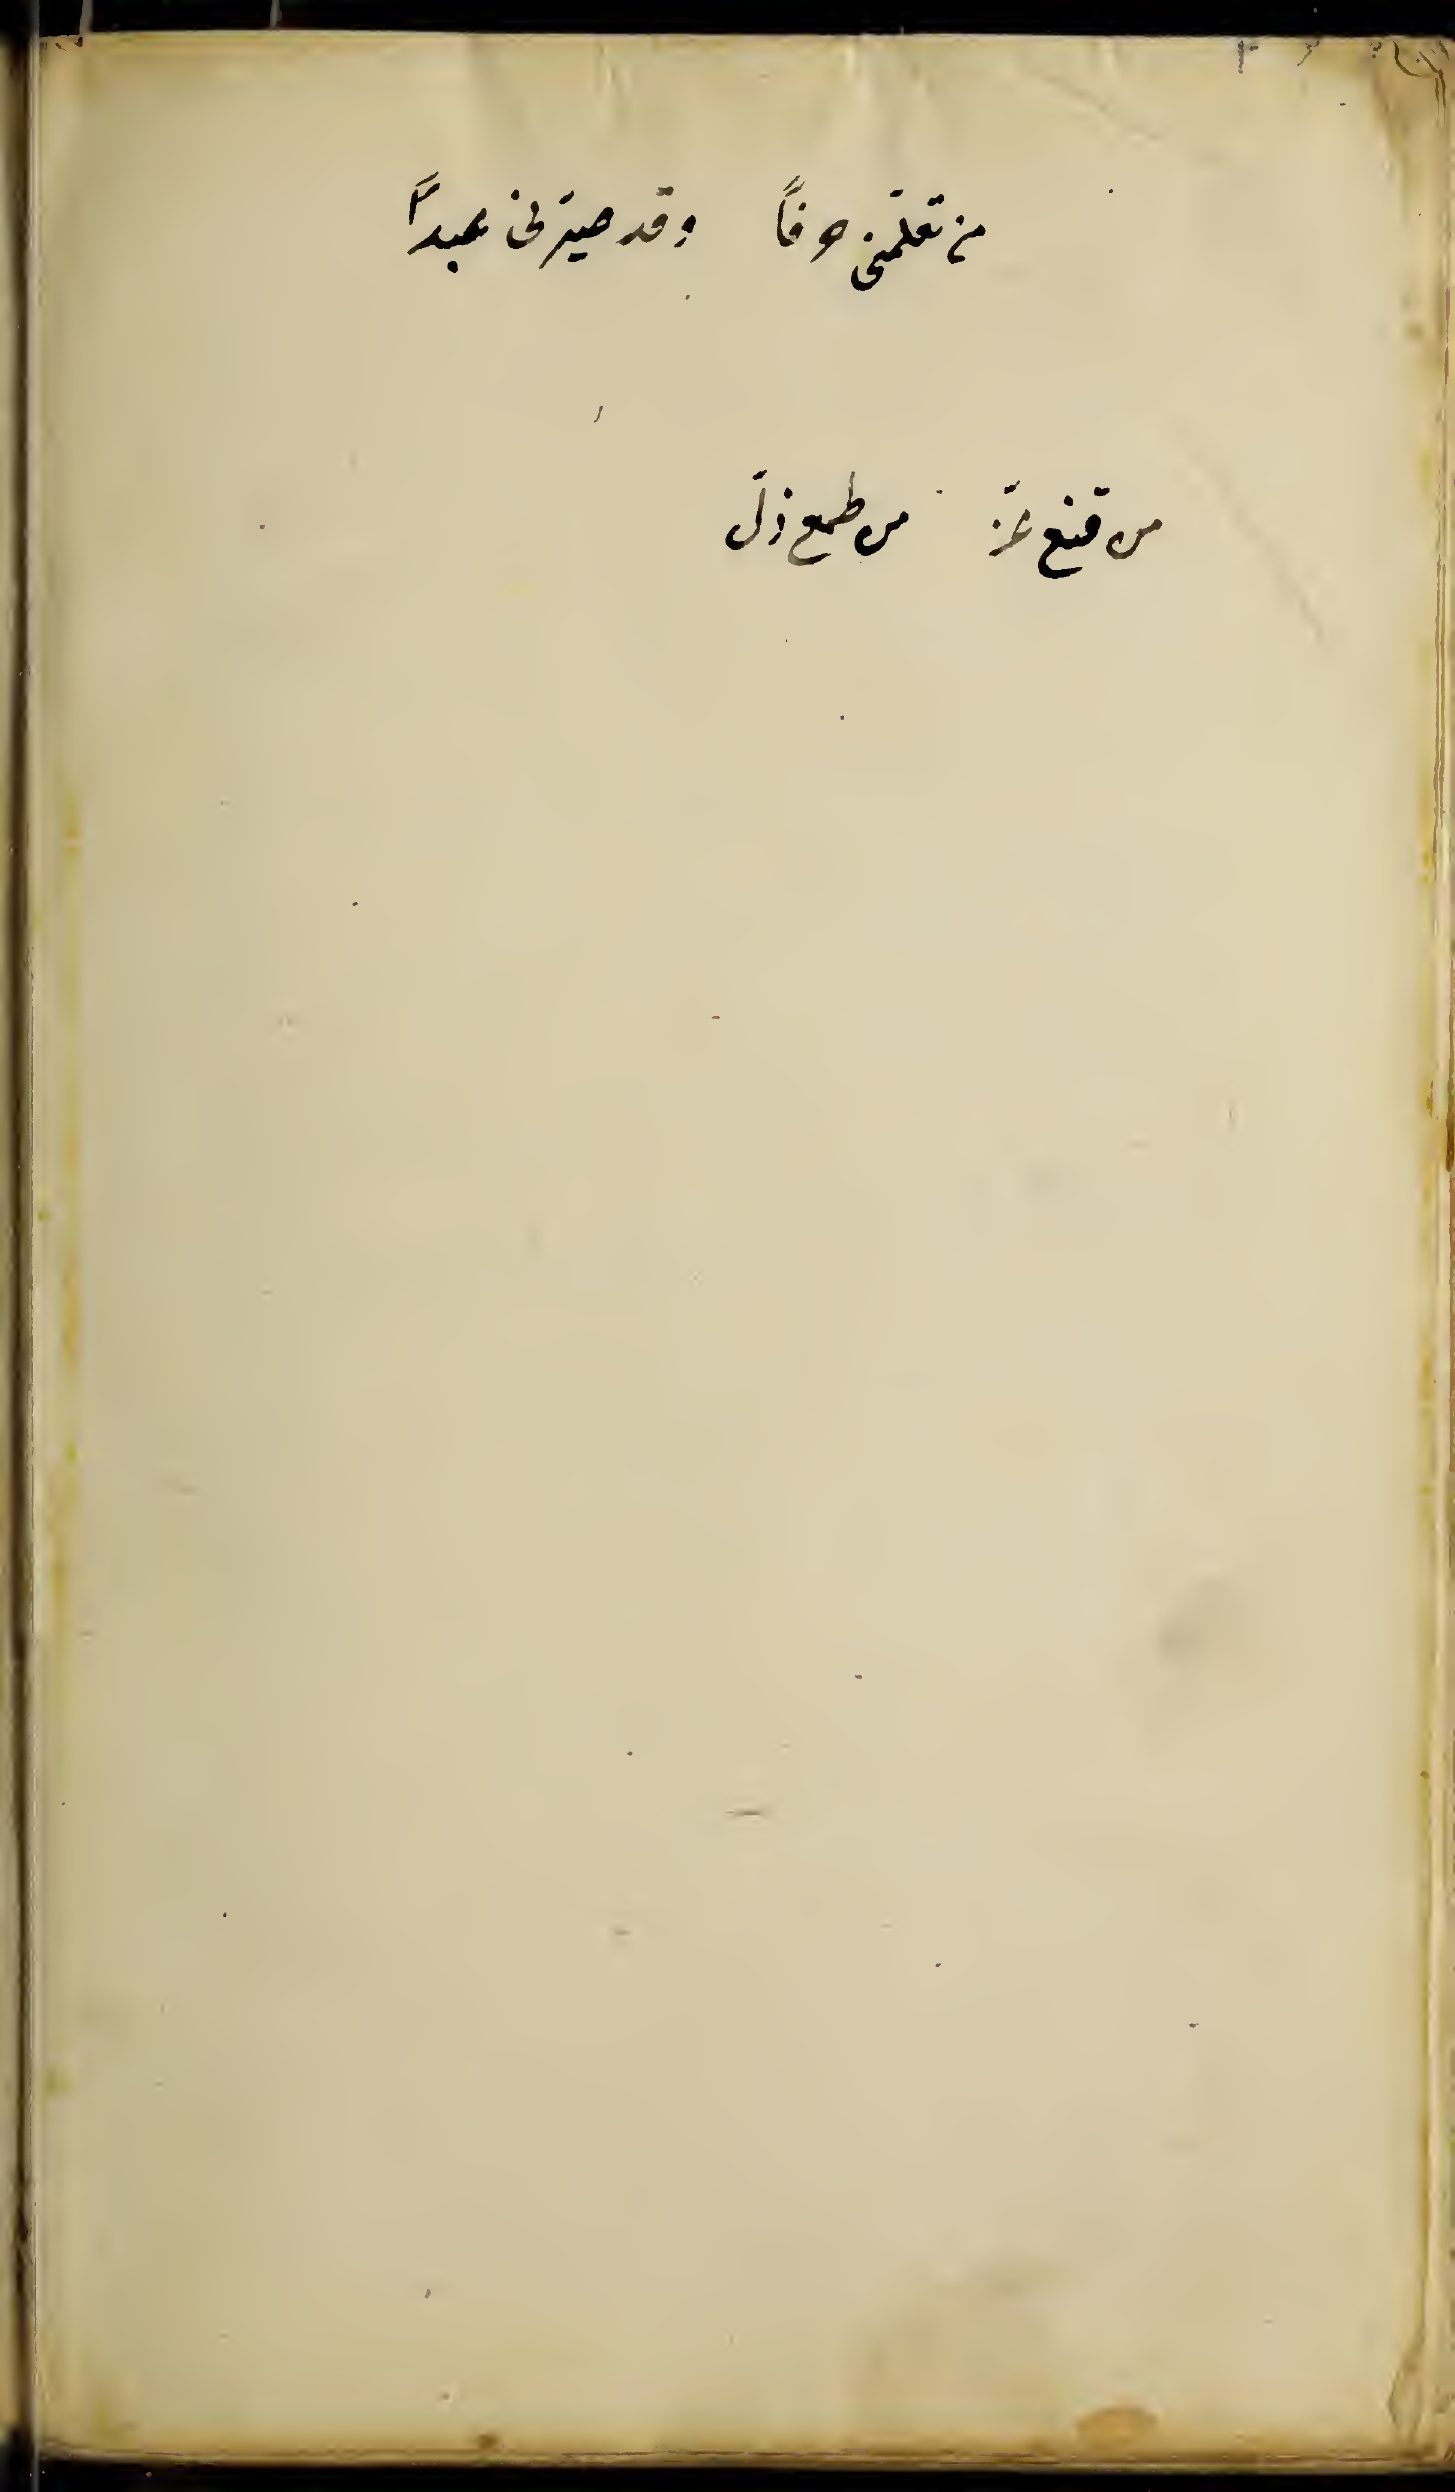 من تعلّمنی حرفاً وقد صیّرنی عبداً
من قنع عزّ من طمع ذلّ